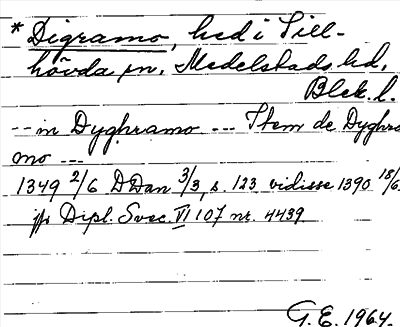 * Digramo, hed i Till-
hövda sn. Medelstads hd,
Blek. l.
-- in Dyghramo --- Item de Dyghra
mo ---
1349 2/6 DDan 3/3, s. 123 vidisse 1390 18/6
jfr Dipl. Svec. VI 107 nr. 4439.
G.E. 1964.